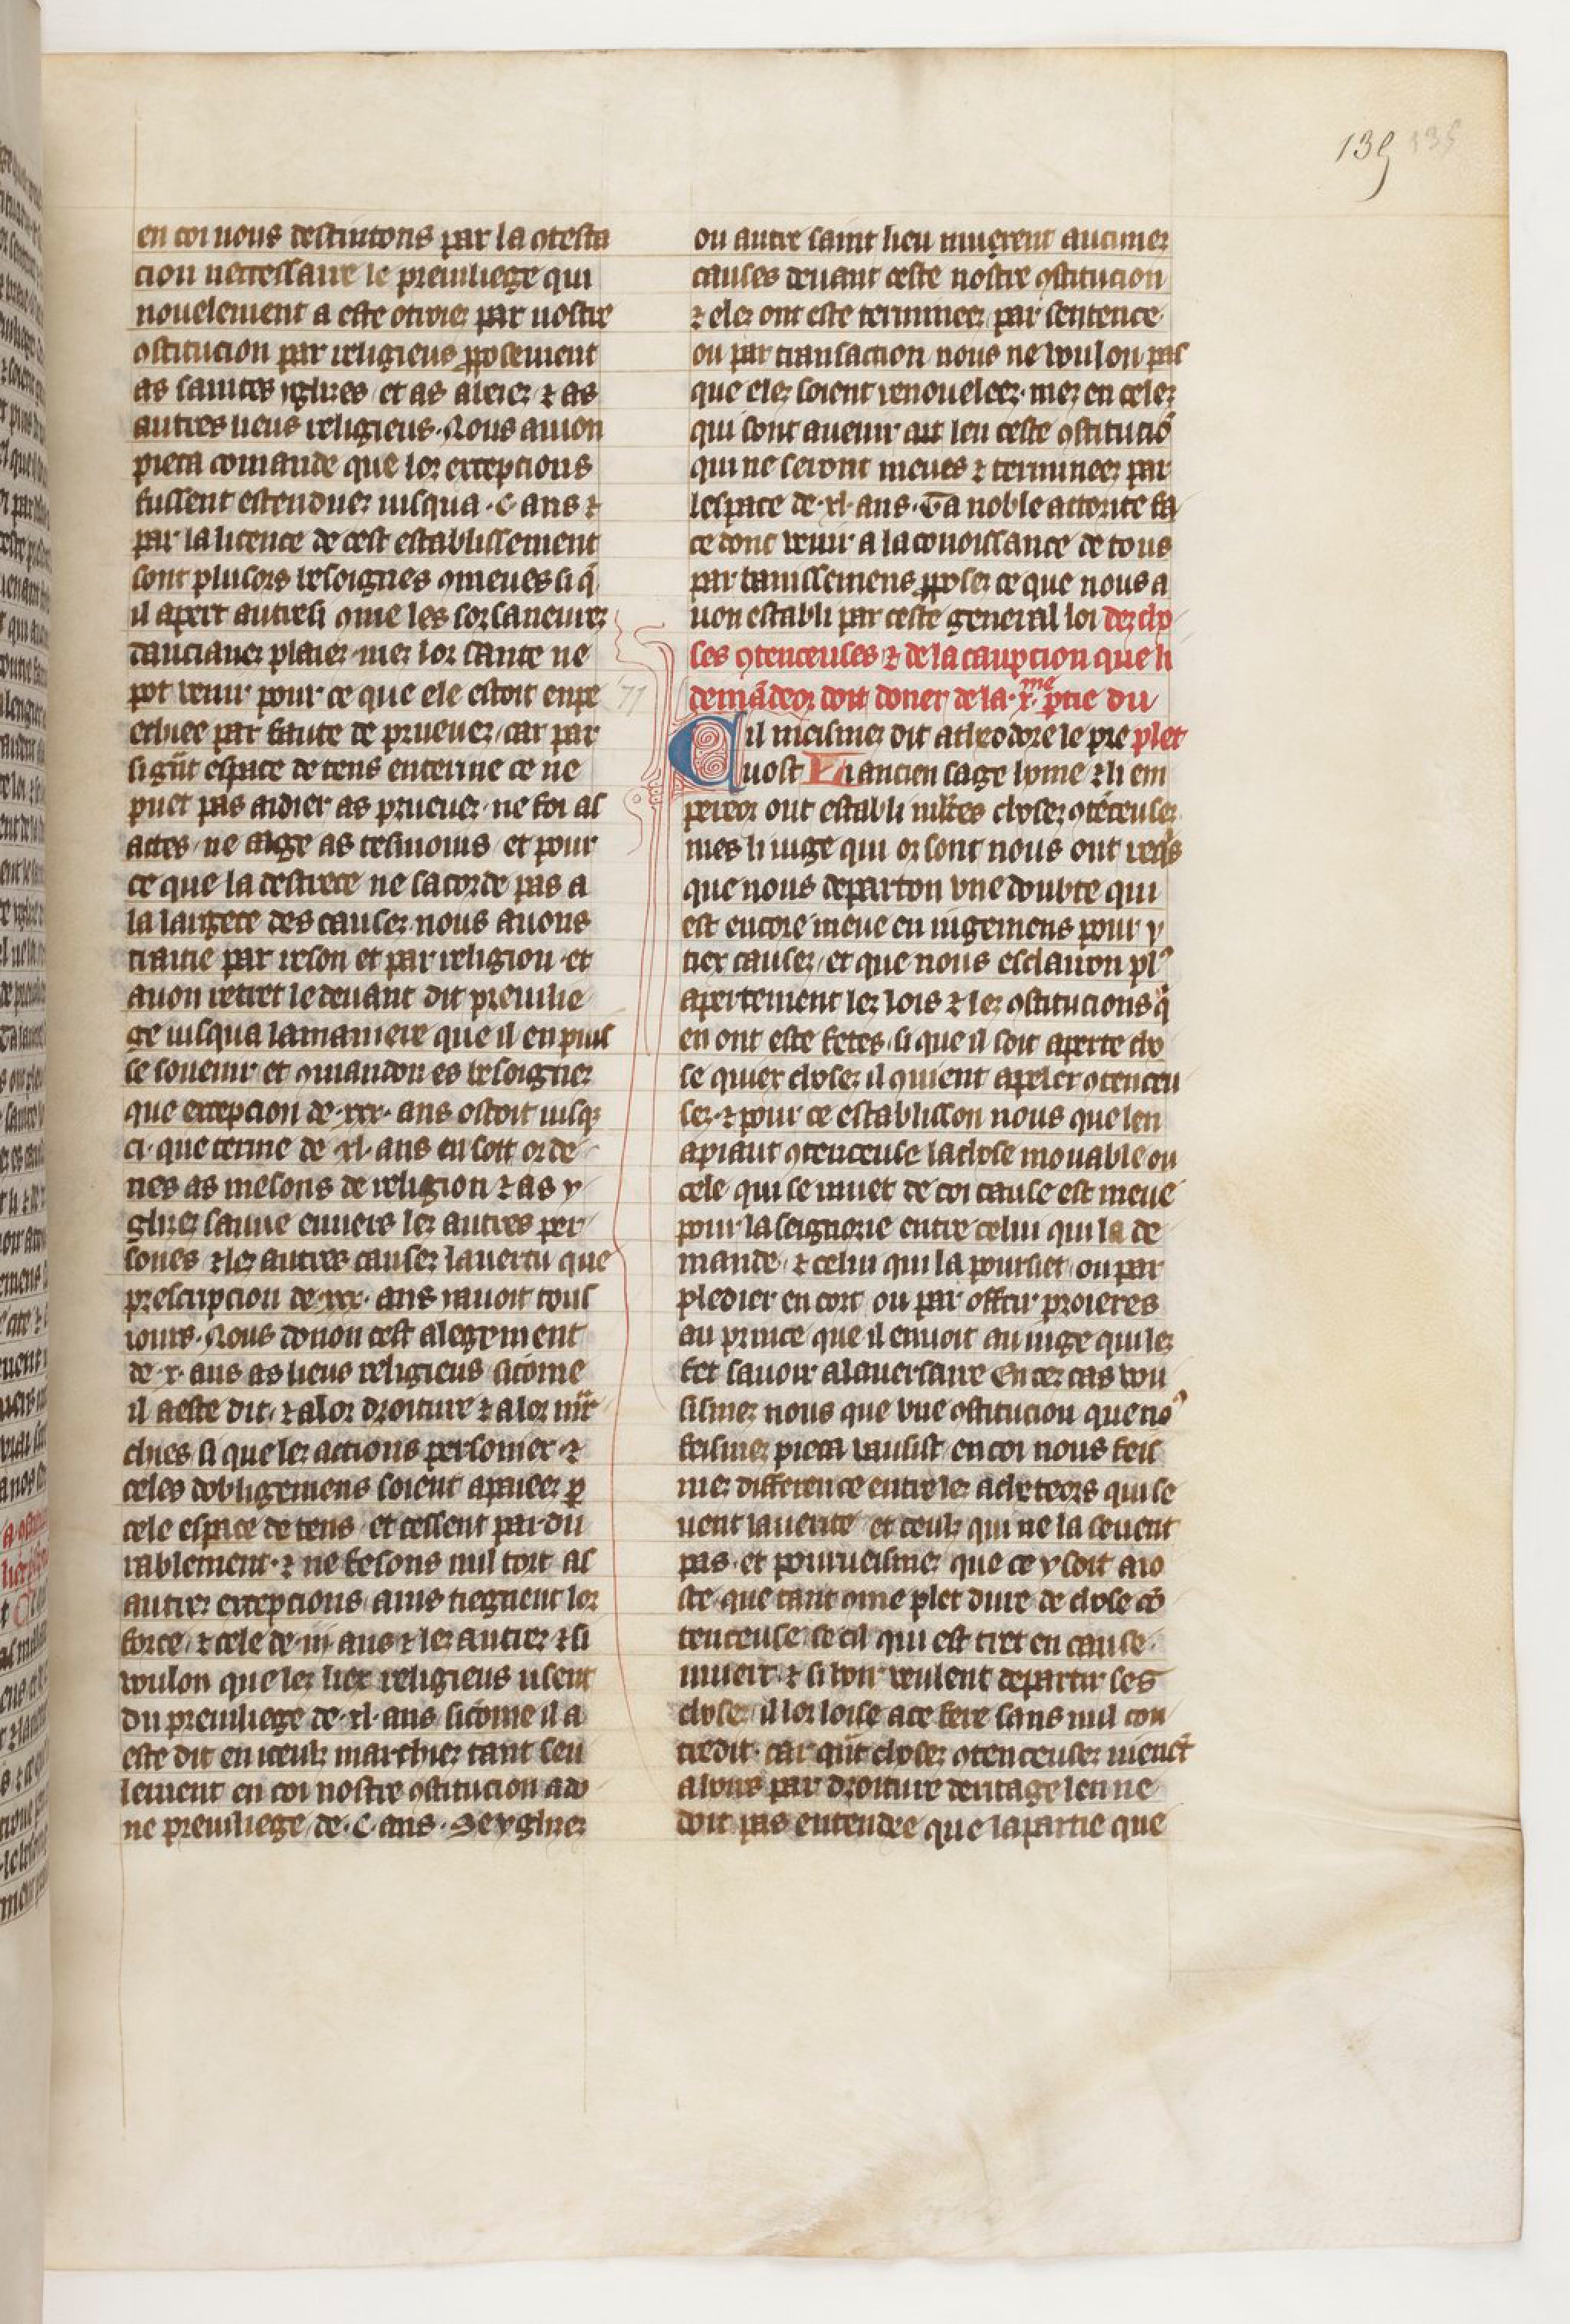 139 135
en coi nous destruions par la ꝯtesta
cion neccessaire le preuiliege qui
nouelement a este otroiez par nostre
ꝯstitucion par religieus ꝓposement
as saintes yglises et as aieiez ⁊ as
autres lieus religieus. Nous auion
pieca comande que lor excepcions
fussent estendues iusqua .c. ans ⁊
par la licence de cest establissement
sont plusors besoignes ꝯmeues si q̄
il apert autresi ꝯme les sorsaneures
dancianes plaies mes lor sante ne
pot venir pour ce que ele estoit enpe
echiee par faute de prueues, car par
si gn̄t espace de tens enterine ce ne
puet pas aidier as prueues ne foi as
actes ne aage as tesmoins et pour
ce que la destrece ne sacorde pas a
la largece des causes nous auons
traitie par reson et par religion et
auon retret le deuant dit preuilie
ge iusqua la maniere que il en puis
se souenir et ꝯmandon es besoignes
que excepcion de .xxx. ans ostoit iusq̄
ci. que terme de .xl. ans en soit orde
nes as mesons de religion ⁊ as y
glises sauue enuers lez autres per
sones ⁊ lez autres causes la uertu que
prescripcion de .xxx. ans i auoit tous
iours. Nous donon cest alegement
de .x. ans as lieus religieus sicome
il a este dit, ⁊ a lor droiture ⁊ a lor nr̄e
chies si que lez actions personiez ⁊
celes dobligemens soient apaiees ꝑ
cele espace de tens et cessent pardu
rablement. ⁊ ne fesons nul tort as
autres excepcions ains tiegnent lor
force, ⁊ cele de .iii. ans ⁊ lez autres ⁊ si
voulon que lez liex religieus usent
du preuiliege de .xl. ans sicome il a
este dit en iceulz marchiez tant seu
lement en coi nostre ꝯstitucion a do
ne preuiliege de .C. ans. Se yglises
ou autre saint lieu murent aucunes
causes deuant ceste nostre ꝯstitucion
⁊ eles ont este terminees par sentence
ou par transaction nous ne voulon pas
que eles soient renouelees. mes en celes
qui sont auenir ait leu ceste ꝯstitucio᷈
qui ne seront meues ⁊ terminees par
lespace de .xl. ans. Ta noble autorite fa
ce donc venir a la conoissance de tous
par banissemens ꝓposez ce que nous a
uon establi par ceste general loi dez cho
ses ꝯtenceuses ⁊ de la caupcion que li
demādeor doit doner de la .x.me ꝑtie du
71
Cil meismes dit a theodore le pre plet
uost Li ancien sage home ⁊ li em
pereor ont establi mltes choses ꝯtēceuses
mes li iuge qui or sont nous ont reqͥs
que nous departon vne doubte qui
est encore meue en iugemens pour y
tiex causes, et que nous esclairon plꝰ
apertement lez lois ⁊ lez ꝯstitucions q̄
en ont este fetes, si que il soit aperte cho
se quiex choses il ꝯuient apeler ꝯtenceu
ses. ⁊ pour ce establisson nous que len
apiaut ꝯtenceuse la chose mouable ou
cele qui se muet de coi cause est meue
pour la seignorie entre celui qui la de
mande, ⁊ celui qui la poursiet, ou par
pledier en cort ou par offrir proieres
au prince que il enuoit au iuge qui lez
fet sauoir a lauersaire En cez cas vou
sismes nous que vne ꝯstitucion que noꝰ
feismes pieca vausist en coi nous feis
mes difference entre lez acheteors qui se
uent la uerite et ceulz qui ne la seuent
pas. et pourueismes que ce y soit aio
ste que tant ꝯme plet dure de chose cō
tenceuse. se cil qui est tret en cause.
muert. ⁊ si hoir veulent departir les
choses il lor loise a ce fere sans nul con
tredit. car qn̄t choses ꝯtenceuses uienēt
a hoirs par droiture deritage len ne
doit pas entendre que la partie que